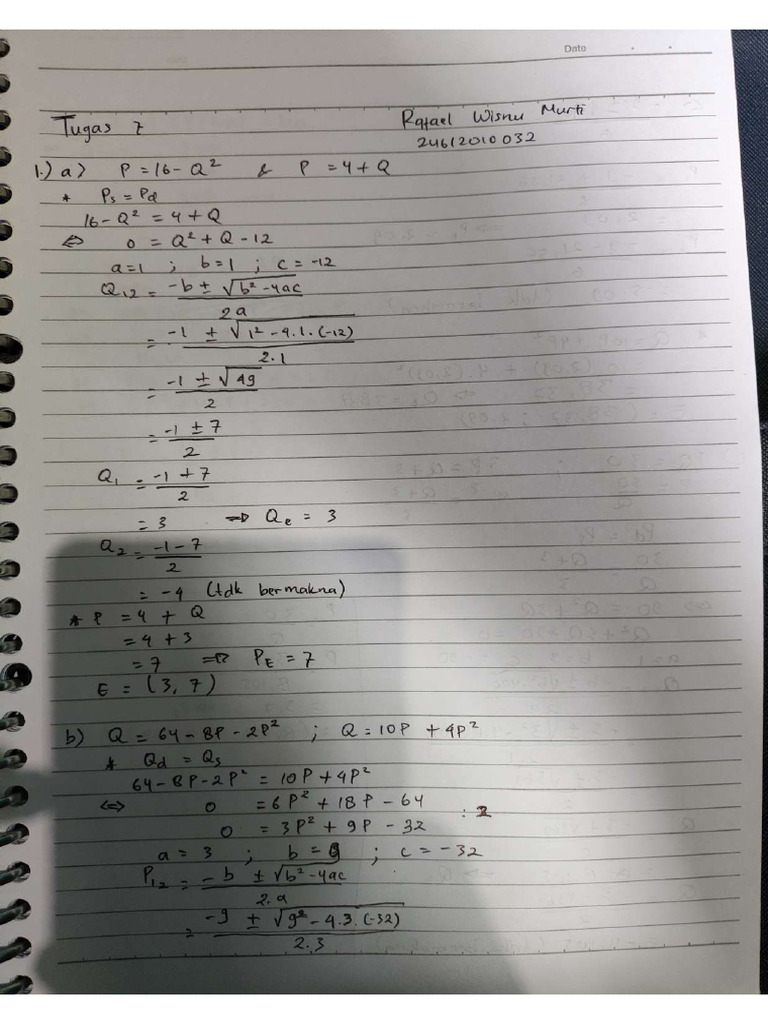 Date
Tugas 7
Rafael Wisnu Murti
24612010032
1.) a) P = 16 - Q² & P = 4 + Q
* Ps = Pd
16 - Q² = 4 + Q
⇔ 0 = Q² + Q - 12
a = 1 ; b = 1 ; c = -12
Q12 = -b ± √b² - 4ac / 2a
= -1 ± √1² - 4.1.(-12) / 2.1
= -1 ± √49 / 2
= -1 ± 7 / 2
Q1 = -1 + 7 / 2
= 3 ⇒ Qe = 3
Q2 = -1 - 7 / 2
= -4 (tdk bermakna)
* P = 4 + Q
= 4 + 3
= 7 ⇒ PE = 7
E = (3, 7)
b) Q = 64 - 8P - 2P² ; Q = 10P + 4P²
* Qd = Qs
64 - 8P - 2P² = 10P + 4P²
⇔ 0 = 6P² + 18P - 64 : 2
0 = 3P² + 9P - 32
a = 3 ; b = 9 ; c = -32
P12 = -b ± √b² - 4ac / 2.a
= -9 ± √9² - 4.3.(-32) / 2.3